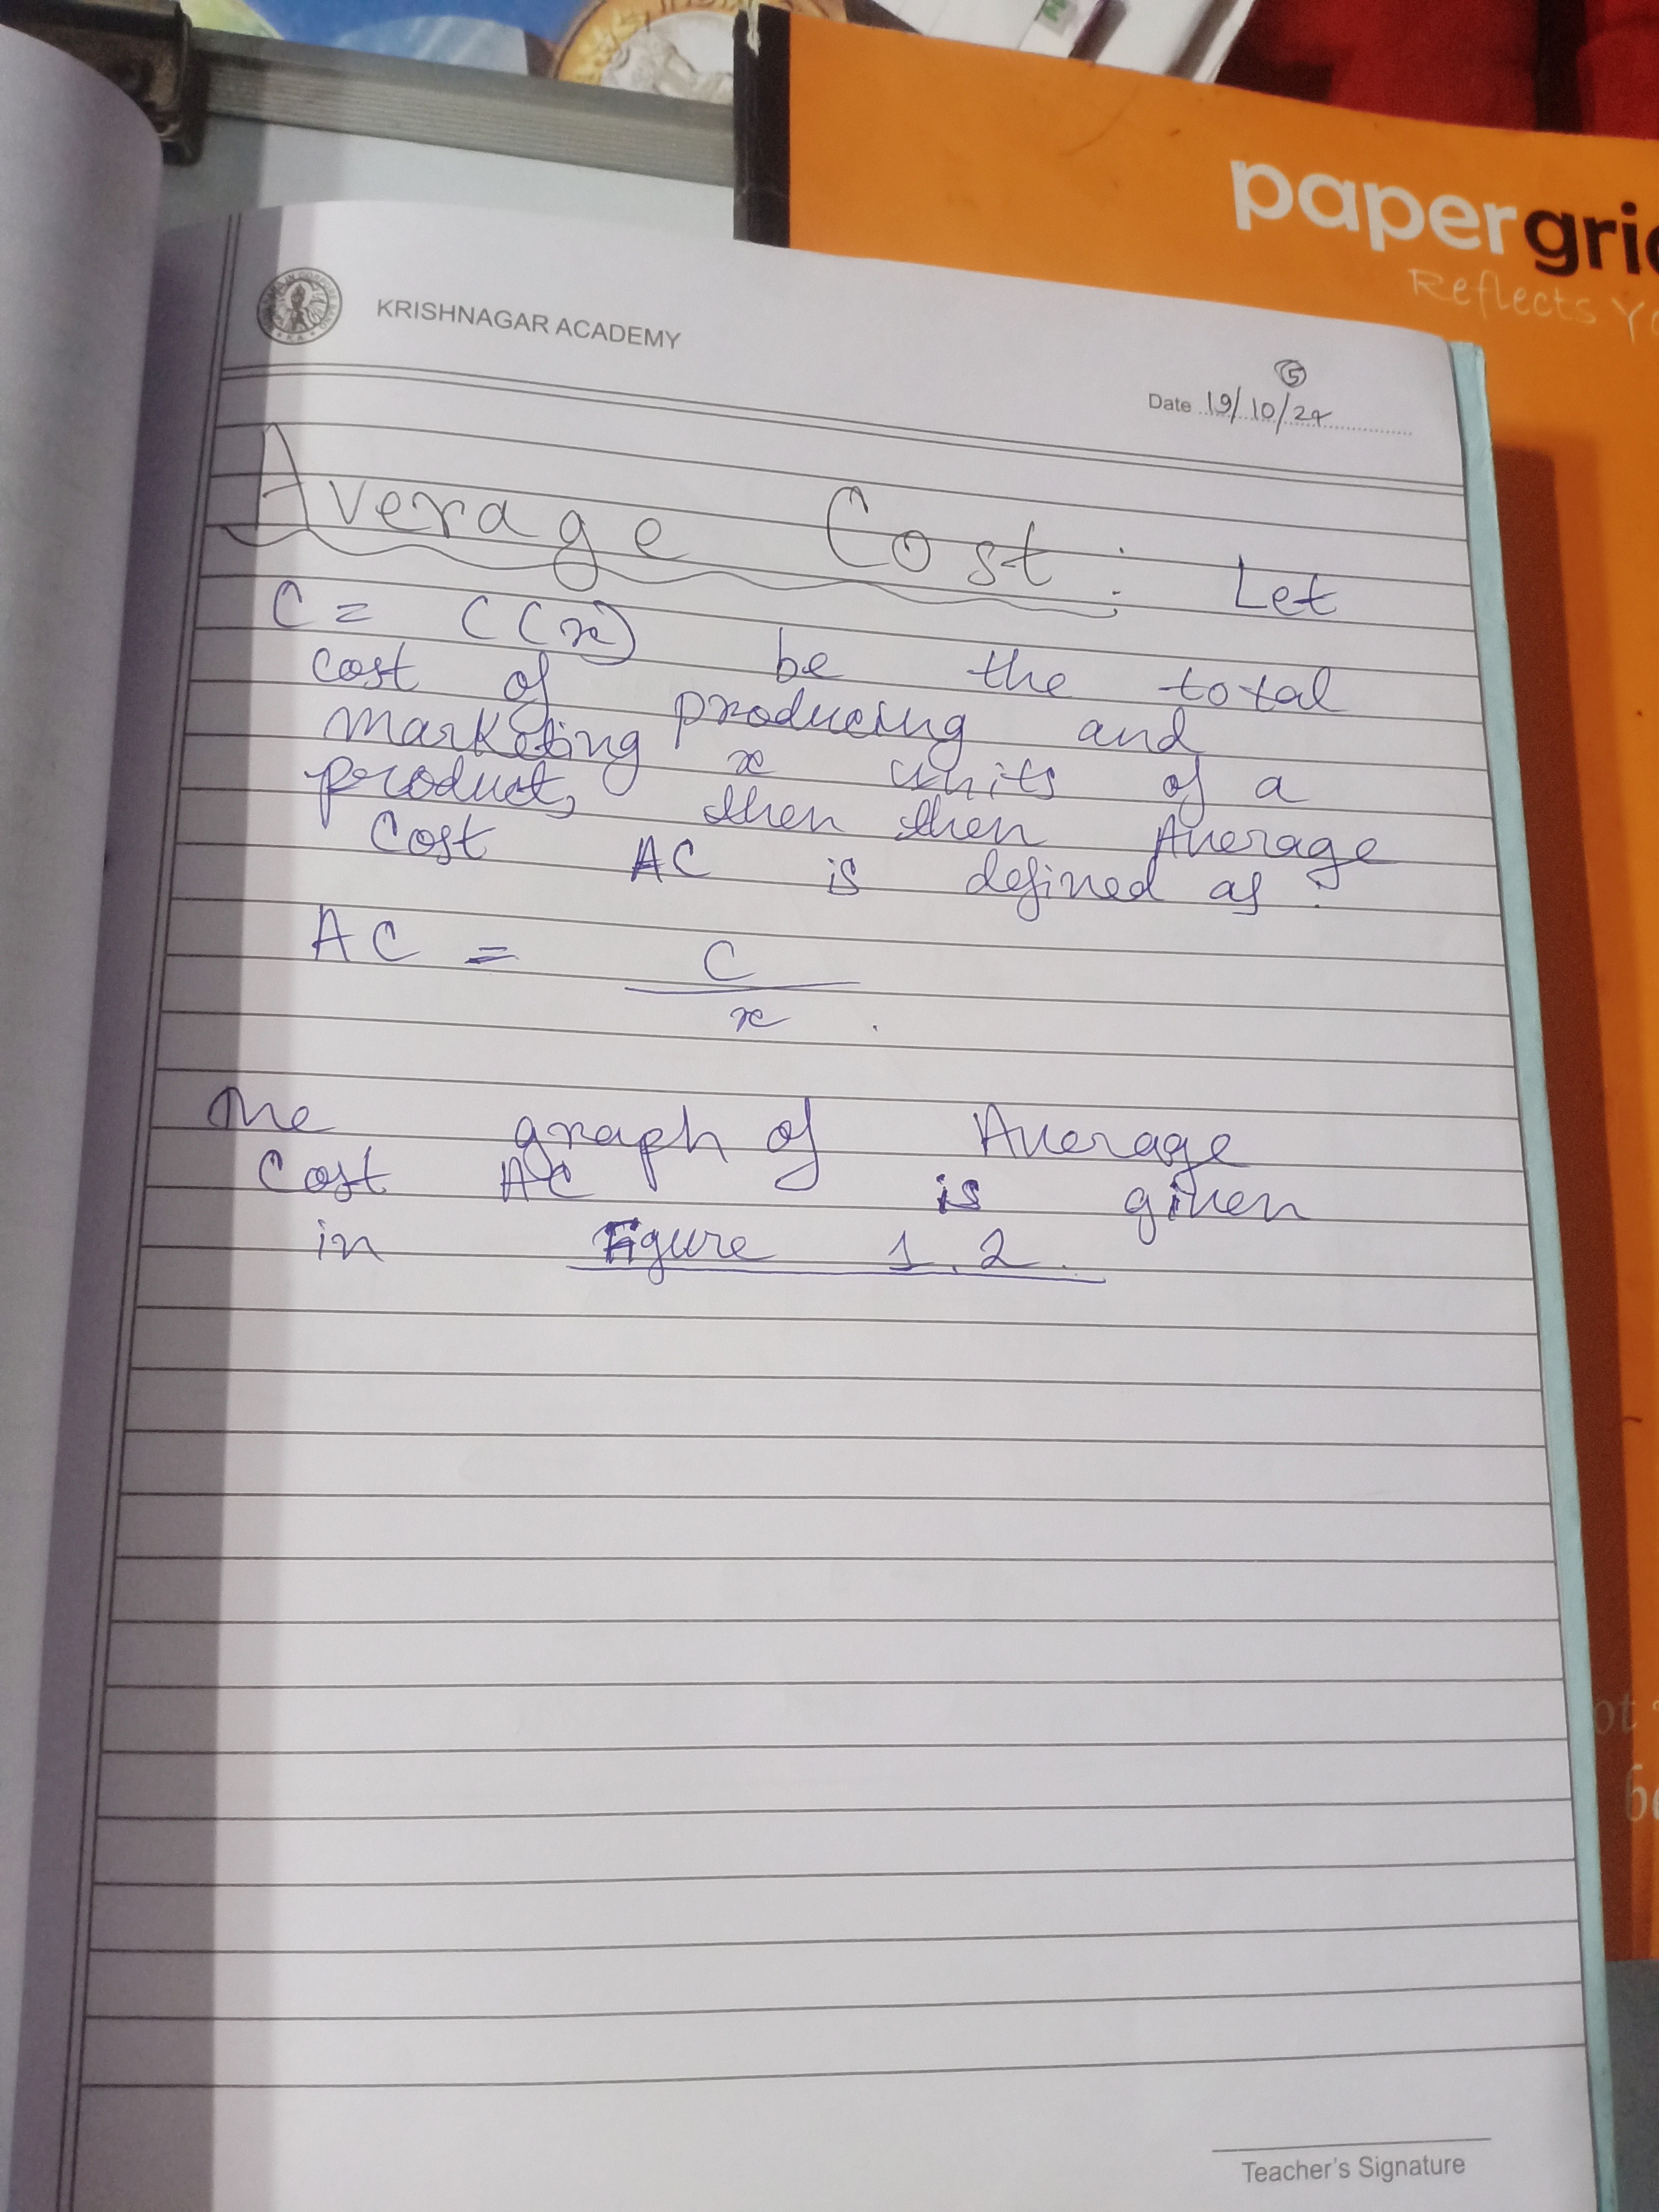 papergri
Reflects Yo
KRISHNAGAR ACADEMY
5
Date 19/10/24
Average Cost : Let
C = C(x) be the total
cost of producing and
marketing x units of a
product, then then Average
Cost AC is defined as :
AC = C
x .
The graph of Average
Cost AC is given
in Figure 1.2.
Teacher's Signature